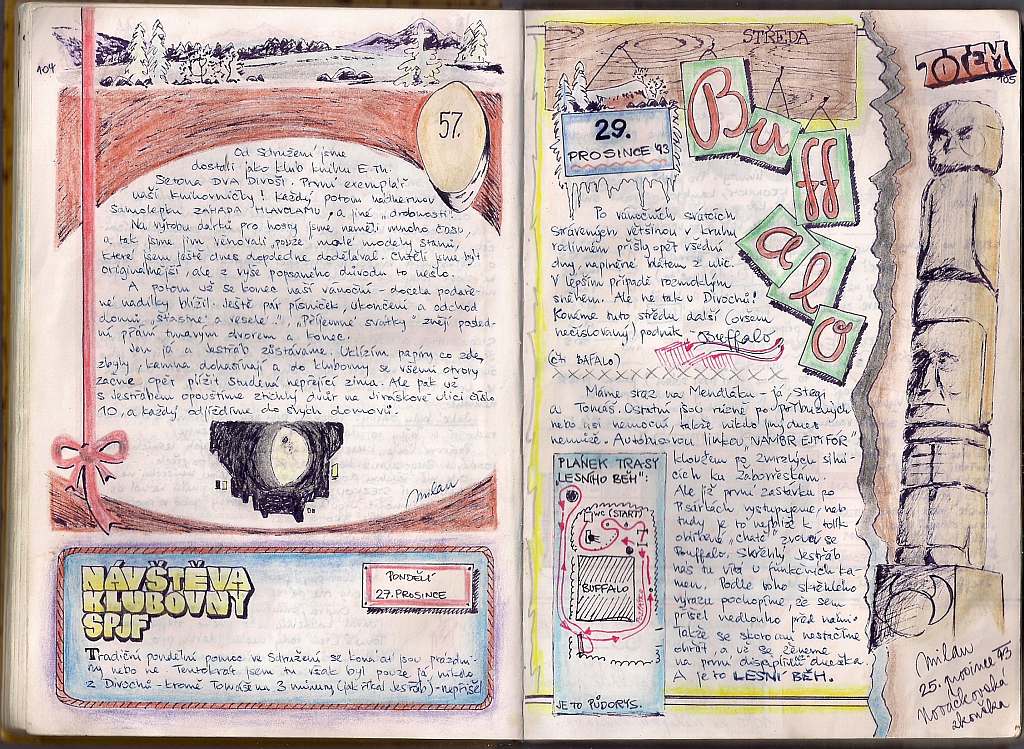 104
57.
Od Sdružení jsme
dostali jako klub knihu E. Th.
Setona DVA DIVOŠI. První exemplář
naší knihovničky! Každý potom nádhernou
samolepku ZÁHADA HLAVOLAMU, a jiné "drobnosti".
Na výrobu dárků pro hosty jsme neměli mnoho času,
a tak jsme jim věnovali "pouze" malé modely stanů,
které jsem ještě dnes dopoledne dodělával. Chtěli jsme být
originálnější, ale z výše popsaného důvodu to nešlo.
A potom už se konec naší vánoční - docela podaře-
né nadílky blížil. Ještě pár písniček, ukončení a odchod
domů. "Šťastné a veselé!", "Příjemné svátky" znějí posled-
ní přání tmavým dvorem a konec.
Jen já a Jestřáb zůstáváme. Uklízím papíry co zde
zbyly, kamna dohasínají a do klubovny se všemi otvory
začne opět plížit studená nepřející zima. Ale pak už
s Jestřábem opouštíme ztichlý dvůr na Jiráskově ulici číslo
10, a každý odjíždíme do svých domovů.
Milan
NÁVŠTĚVA
KLUBOVNY
SPJF
PONDĚLÍ
27. PROSINCE
Tradiční pondělní pomoc ve Sdružení se koná ať jsou prázdni-
ny nebo ne. Tentokrát jsem tu však byl pouze já, nikdo
z Divochů - kromě Tomáše na 3 minuty (jak říkal Jestřáb) - nepřišel
STŘEDA
Buffalo
29.
PROSINCE '93
Po vánočních svátcích
strávených většinou v kruhu
rodinném přišly opět všední
dny naplněné blátem z ulic.
V lepším případě rozmoklým
sněhem. Ale ne tak u Divochů!
Konáme tuto středu další (ovšem
nečíslovaný) podnik - Buffalo
(čti BAFALO)
Máme sraz na Mendláku - já, Stagi
a Tomáš. Ostatní jsou různě po příbuzných
nebo jsou nemocní, takže nikdo jiný dnes
nemůže. Autobusovou linkou
kloužem po zmrzlých silni-
cích ku Žabovřeskám.
Ale již první zastávku po
Pisárkách vystupujeme, neb
tudy je to nejblíž k tolik
oblíbené "chatě" zvoucí se
Buffalo. Skřehlý Jestřáb
nás tu vítá u funkčních ka-
men. Podle jeho skřehlého
výrazu pochopíme, že sem
přišel nedlouho před námi.
Takže se skoro ani nestačíme
ohřát, a už se ženeme
na první disciplínu dneška.
A je to LESNÍ BĚH.
PLÁNEK TRASY
"LESNÍHO BĚH":
WC (START)
BUFFALO
JE TO PŮDORYS.
TOTEM
105
Milan
25. prosince '93
Nováčkovská
zkouška